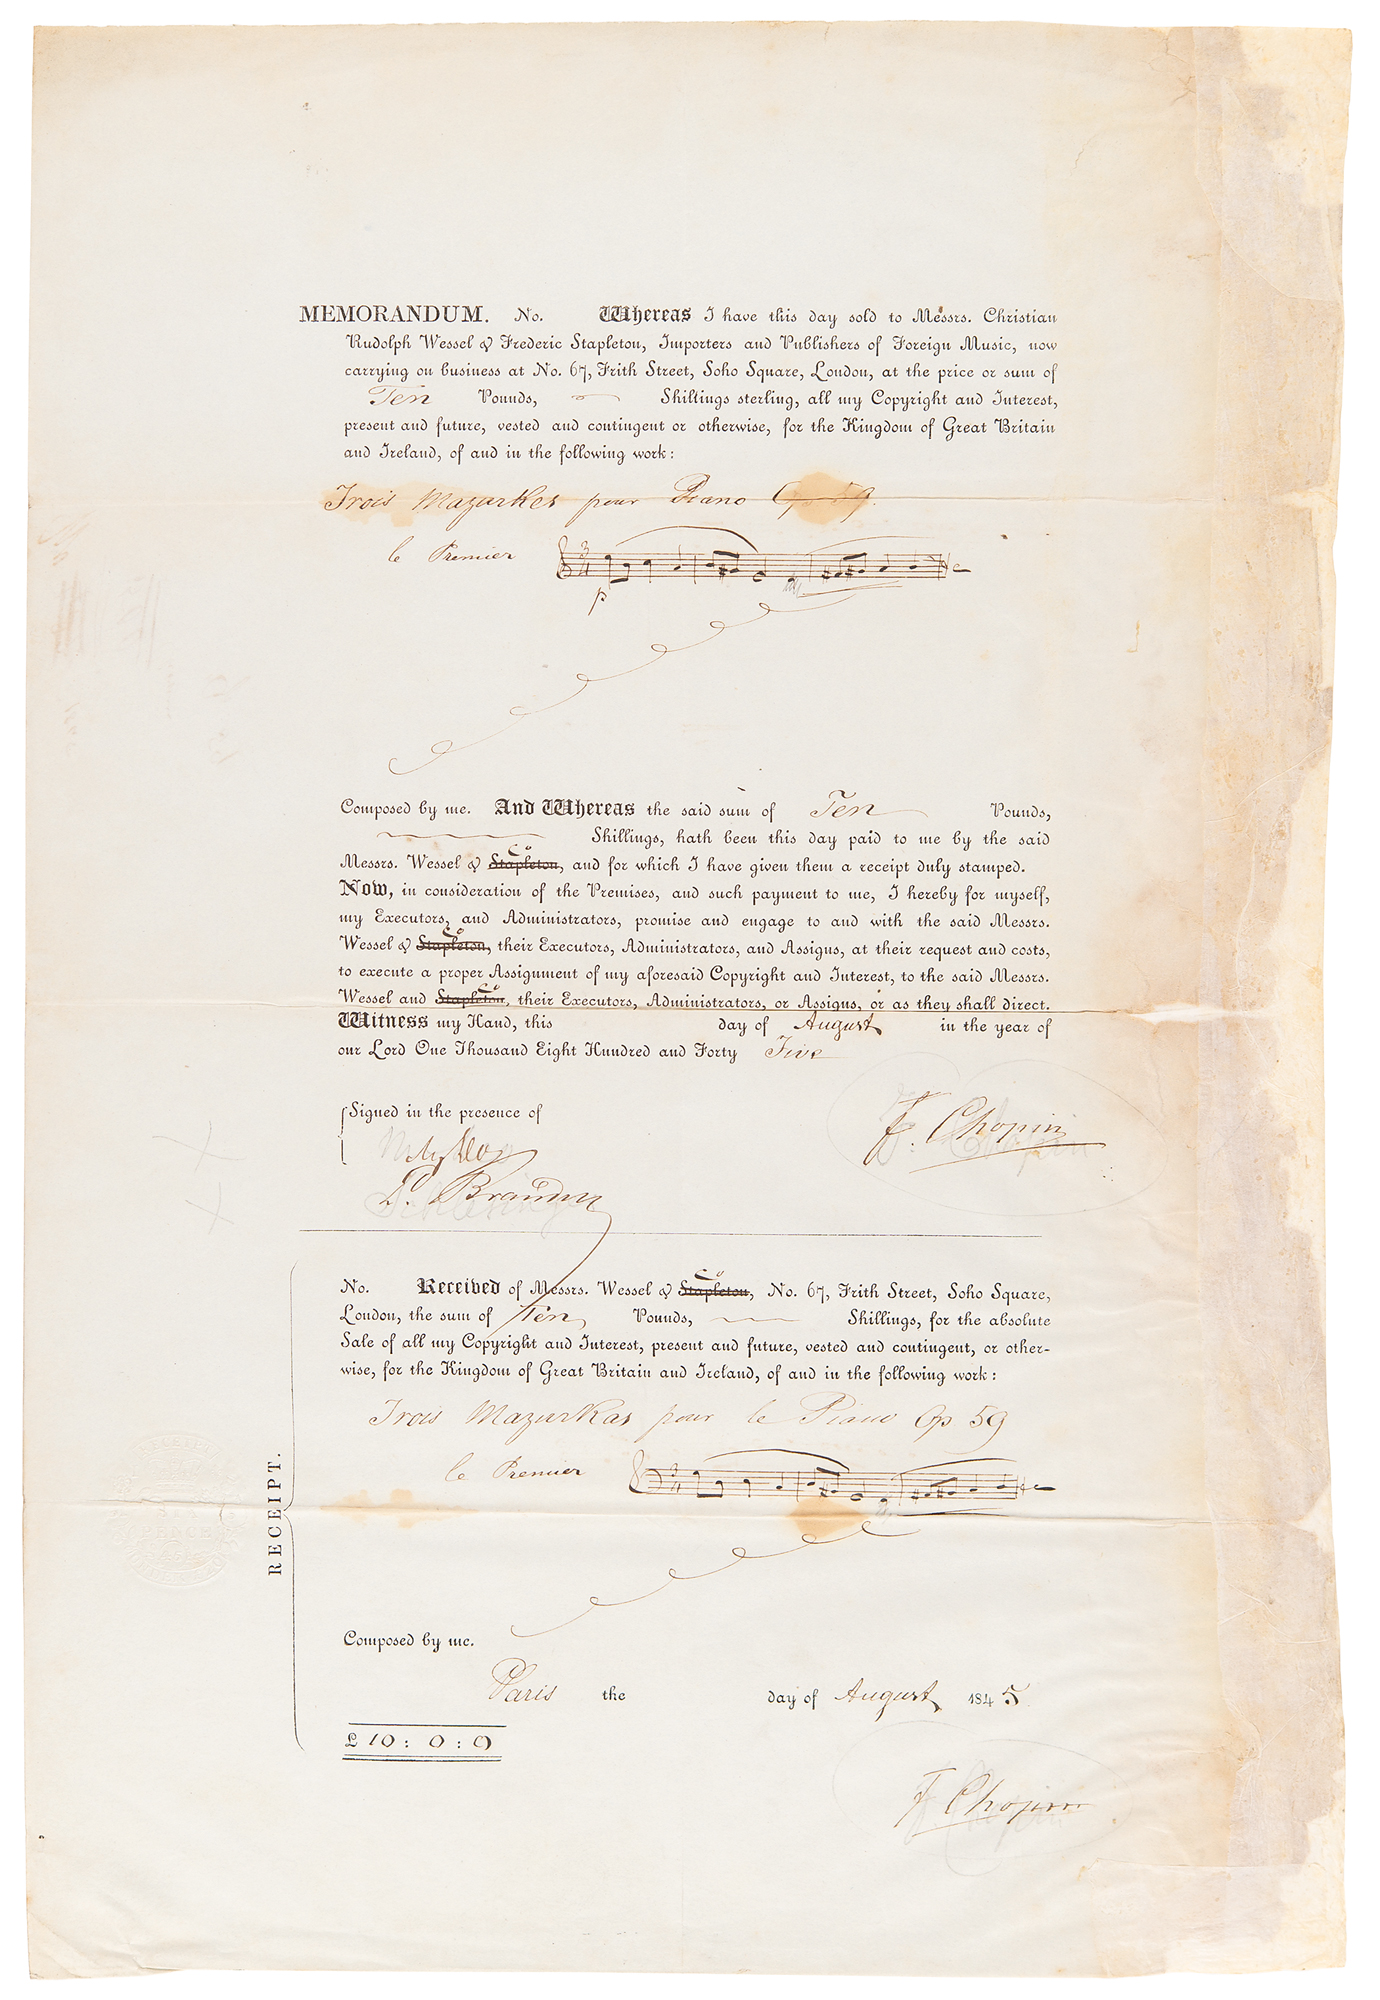 MEMORANDUM. No. Whereas I have this day sold to Messrs. Christian
Rudolph Wessel & Frederic Stapleton, Importers and Publishers of Foreign Music, now
carrying on business at No. 67, Frith Street, Soho Square, London, at the price or sum of
Ten Pounds, Shillings sterling, all my Copyright and Interest,
present and future, vested and contingent or otherwise, for the Kingdom of Great Britain
and Ireland, of and in the following work:
Trois Mazurkes pour Piano Op 59.
le Premier
3/4
p
Composed by me. And Whereas the said sum of Ten Pounds,
Shillings, hath been this day paid to me by the said
Co
Messrs. Wessel & Stapleton, and for which I have given them a receipt duly stamped.
Now, in consideration of the Premises, and such payment to me, I hereby for myself,
my Executors, and Administrators, promise and engage to and with the said Messrs.
Co
Wessel & Stapleton, their Executors, Administrators, and Assigns, at their request and costs,
to execute a proper Assignment of my aforesaid Copyright and Interest, to the said Messrs.
Co
Wessel and Stapleton, their Executors, Administrators, or Assigns, or as they shall direct.
Witness my Hand, this day of August in the year of
our Lord One Thousand Eight Hundred and Forty Five
Signed in the presence of
F. Chopin
Co
No. Received of Messrs. Wessel & Stapleton, No. 67, Frith Street, Soho Square,
London, the sum of Ten Pounds, Shillings, for the absolute
Sale of all my Copyright and Interest, present and future, vested and contingent, or other-
wise, for the Kingdom of Great Britain and Ireland, of and in the following work:
Trois Mazurkas pour le Piano Op 59
le Premier
3/4
RECEIPT.
Composed by me.
Paris the day of August 1845
£ 10 : 0 : 0
F Chopin